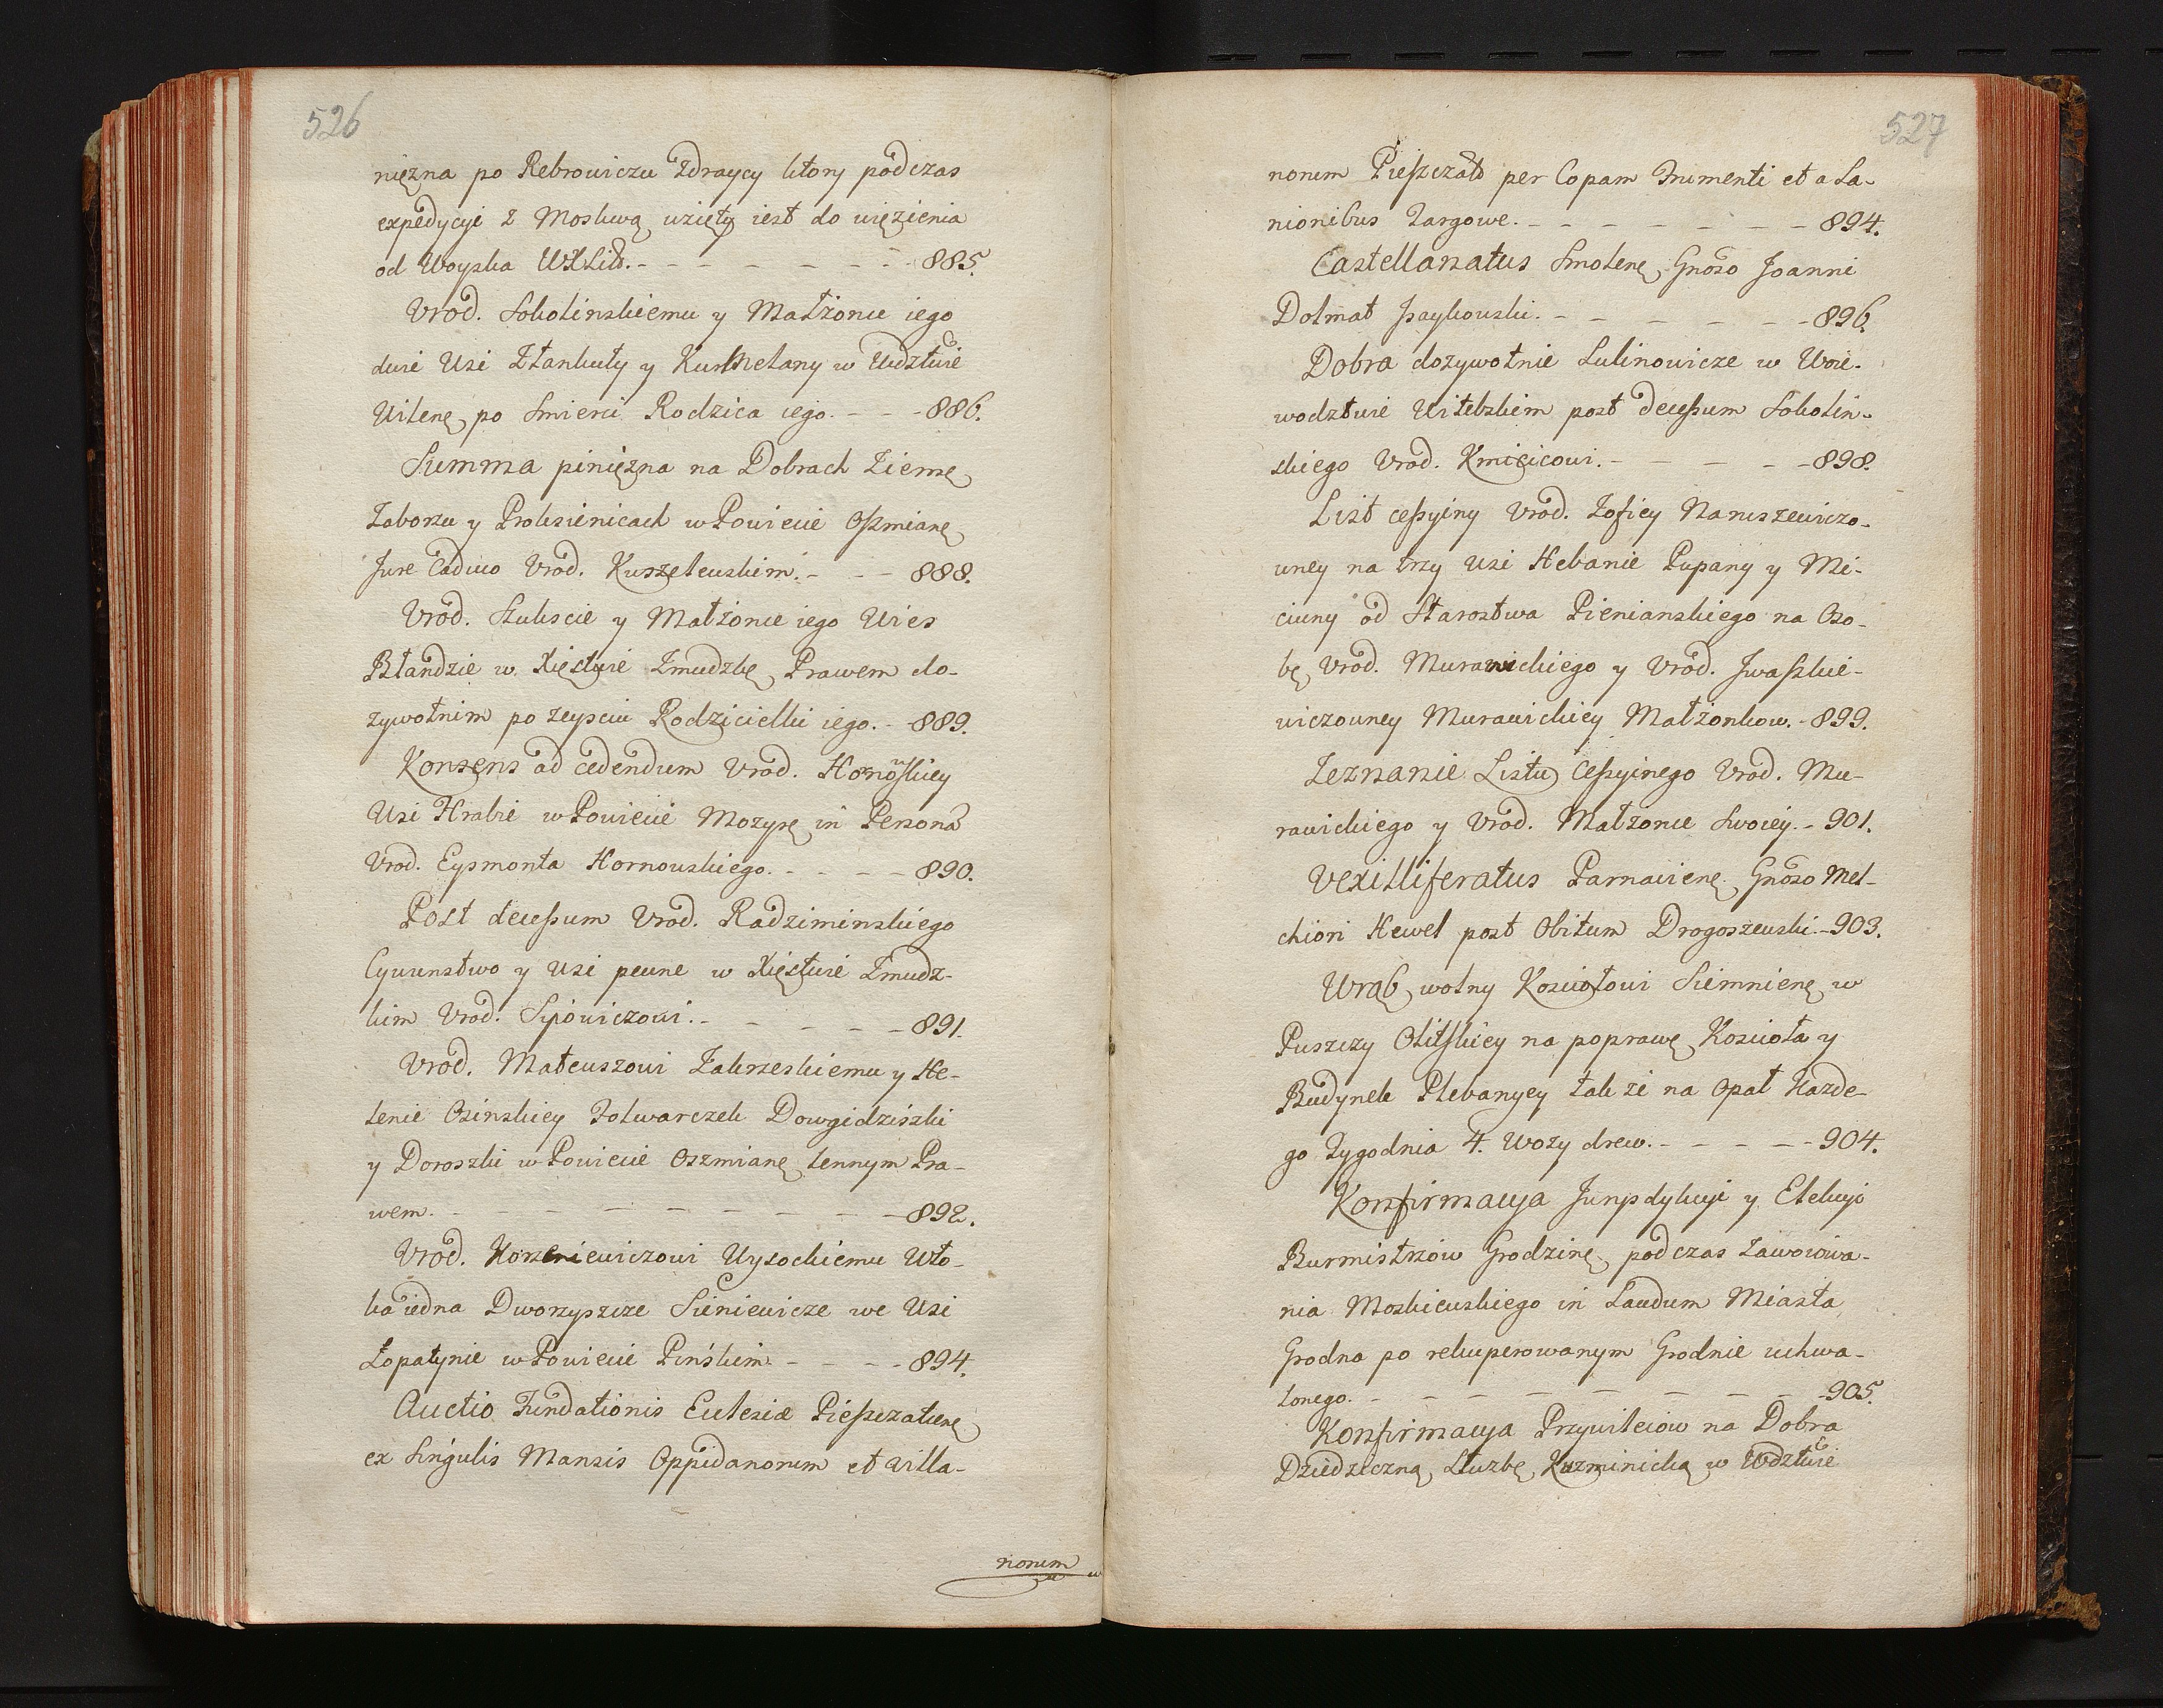 526
niężna po Rebrowiczu Zdraycy ktory podczas
expedycyi z Moskwą wzięty iest do więzienia
od Woyska WXLitt. - - - - - - - 885.
Urod. Sokolinskiemu y Małżonce iego
dwie Wsi Stankuty y Kurklelany w Wdztwie
Wilenę, po Smierci Rodzica iego. - - - 886.
Summa pinięzna na Dobrach Ziemę
Zaborzu y Proksienicach w Powiecie Oszmianę
Jure Caduco Urod. Kuszelewskim. - - - 888.
Urod. Szukscie y Małżonce iego Wies
Błandzie w Xięstwie Zmudzkę Prawem do-
żywotnim po zeysciu Rodzicielki iego. - 889.
Konsens ad cedendum Urod. Hornowskiey
Wsi Hrabie w Powiecie Mozyrę in Personā
Urod. Eysmonta Hornowskiego. - - - - 890.
Post decessum Urod. Radziminskiego
Cywunstwo y Wsi pewne w Xięstwie Zmudz-
kim Urod. Syrowiczowi. - - - - - 891.
Urod. Mateuszowi Zakrzeskiemu y He-
lenie Osinskiey Folwarczek Dowgidziszki
y Doroszki w Powiecie Oszmianę lennym Pra-
wem. - - - - - - - - - 892.
Urod. Korzeniewiczowi Wysockiemu Wło-
ka iedna Dworzyszcze Sieniewicze we Wsi
Łopatynie w Powiecie Pinskim. - - - - 894.
Auctio Fundationis Ecclesiæ Pieszczatenę
ex Singulis Mansis Oppidanorum et villa-
norum
527
norum Pieszczatt per Copam Frumenti et a La-
nionibus Targowe. - - - - - - - 894.
Castellanatus Smolenę, Gnoso Joanni
Dolmat Jsaykowski. - - - - - - 896.
Dobra dozywotnie Lulinowicze w Woie-
wodztwie Witebskim post decessum Sokolin-
skiego Urod. Kmicicowi. - - - - - 898.
List cessyiny Urod. Zofiey Naruszewiczo-
wney na trzy Wsi Hebanie Pupany y Mi-
ciuny od Starostwa Pienianskiego na Oso-
bę Urod. Murawickiego y Urod. Jwaszkie-
wiczowney Murawickiey Małżonkow. - 899.
Zeznanie Listu Cessyinego Urod. Mu-
rawickiego y Urod. Małżonce Swoiey. - 901.
Vexilliferatus Parnawienę. Gnoso Mel-
chiori Hewel post Obitum Drogoszewski. - 903.
Wrąb wolny Kosciołowi Siemnienę w
Puszczy Olitskiey na poprawę Kosciola y
Budynek Plebanyey tak ze na Opał Kazde-
go Tygodnia 4. Wozy drew. - - - - - 904.
Konfirmacya Jurysdykcyi y Elekcyi
Burmistrzow Grodzinę, podczas Zawoiowa-
nia Moskiewskiego in Laudum Miasta
Grodna po rekuperowanym Grodnie uchwa-
lonego. - - - - - - - - - 905.
Konfirmacya Przywileiow na Dobra
Dziedziczną Służbę Kuzminicką w Wdztwie